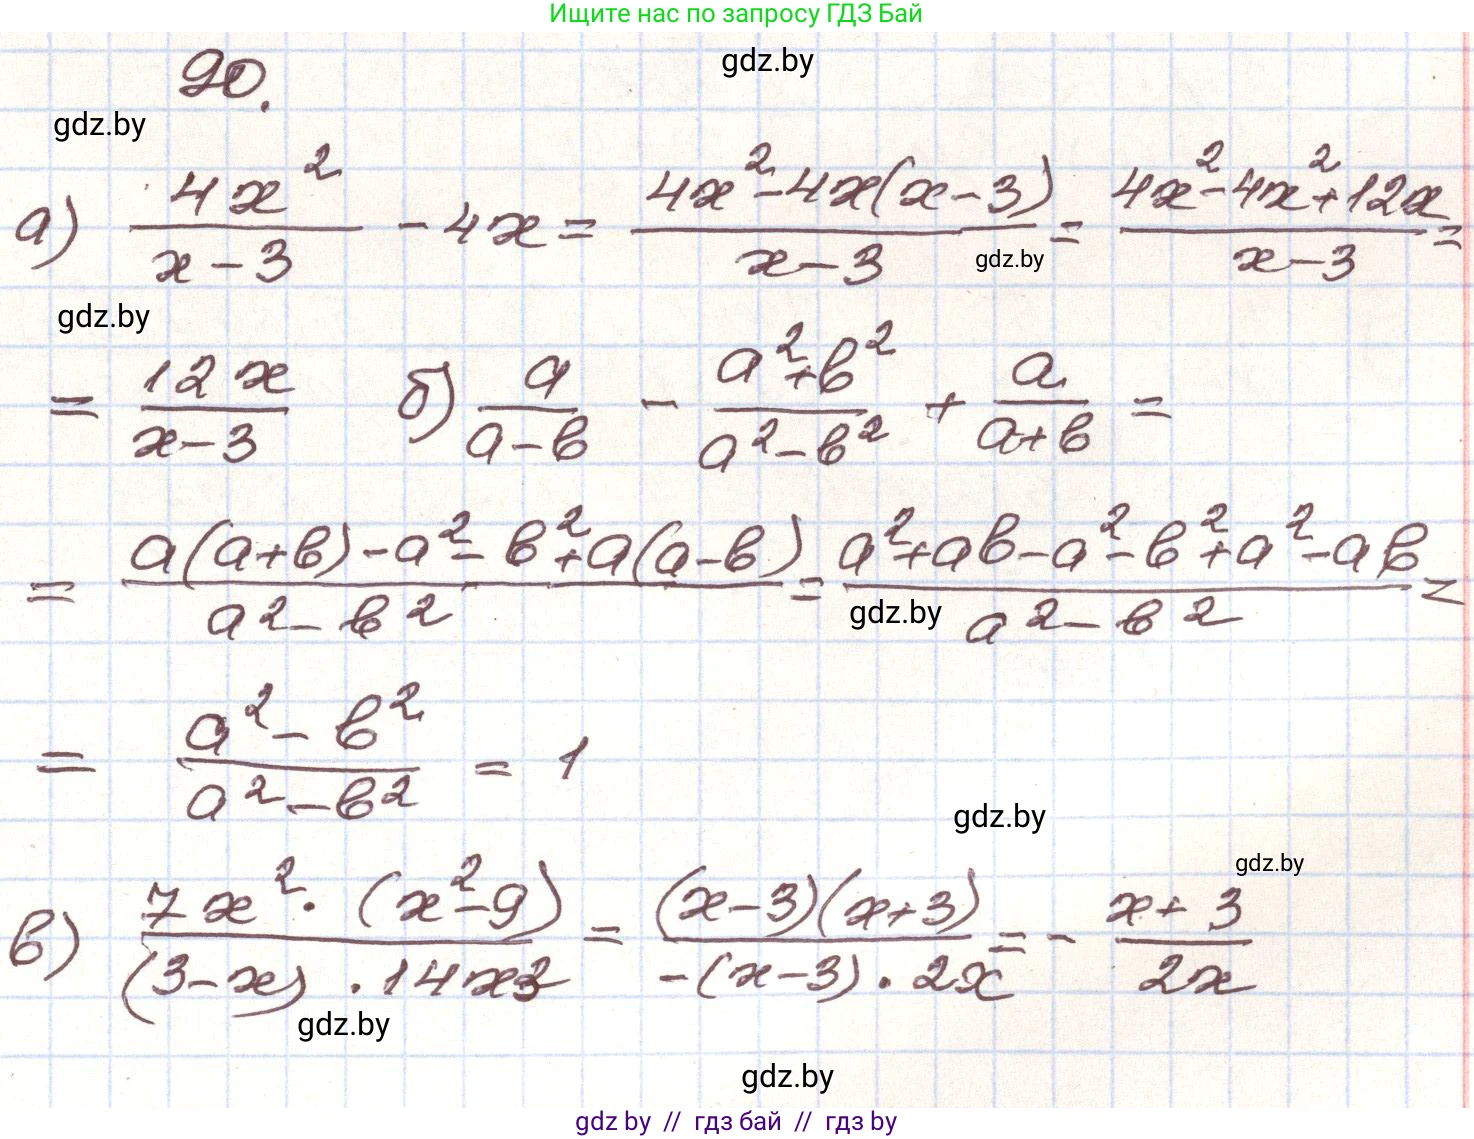 Ищите нас по запросу ГДЗ Бай
90.
gdz.by
gdz.by
а) 4x²/(x-3) - 4x = (4x²-4x(x-3))/(x-3) = (4x²-4x²+12x)/(x-3) =
gdz.by
gdz.by
= 12x/(x-3) б) a/(a-в) - (a²+в²)/(a²-в²) + a/(a+в) =
= (a(a+в)-a²-в²+a(a-в))/(a²-в²) = (a²+aв-a²-в²+a²-aв)/(a²-в²) =
gdz.by
= (a²-в²)/(a²-в²) = 1
gdz.by
gdz.by
в) (7x²·(x²-9))/((3-x)·14x³) = ((x-3)(x+3))/(-(x-3)·2x) = -(x+3)/(2x)
gdz.by
gdz.by
gdz by // гдз бай // гдз by